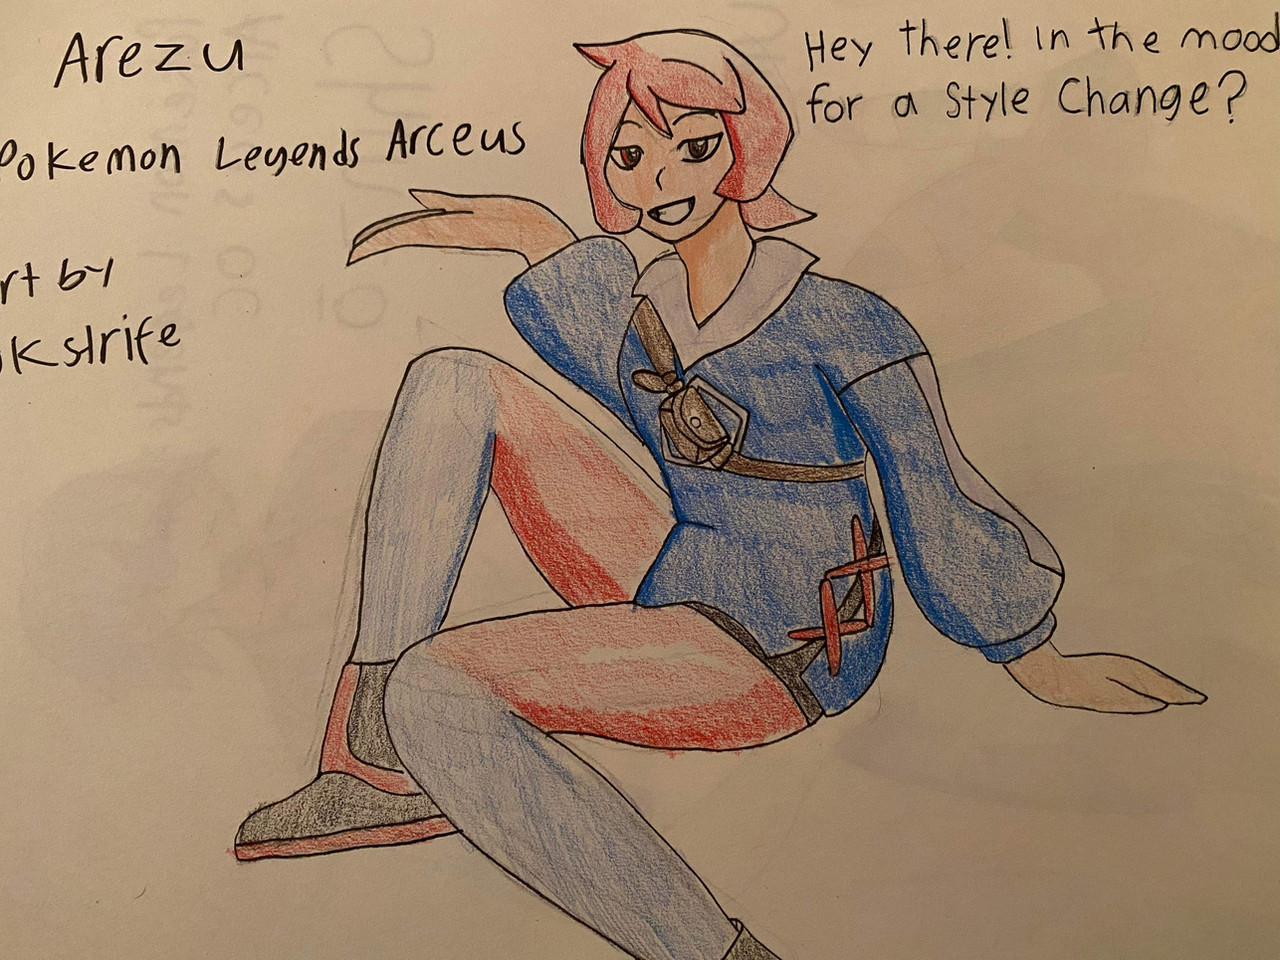 Arezu
Pokemon Legends Arceus
Art by
Kstrife
Hey there! In the mood
for a Style Change?